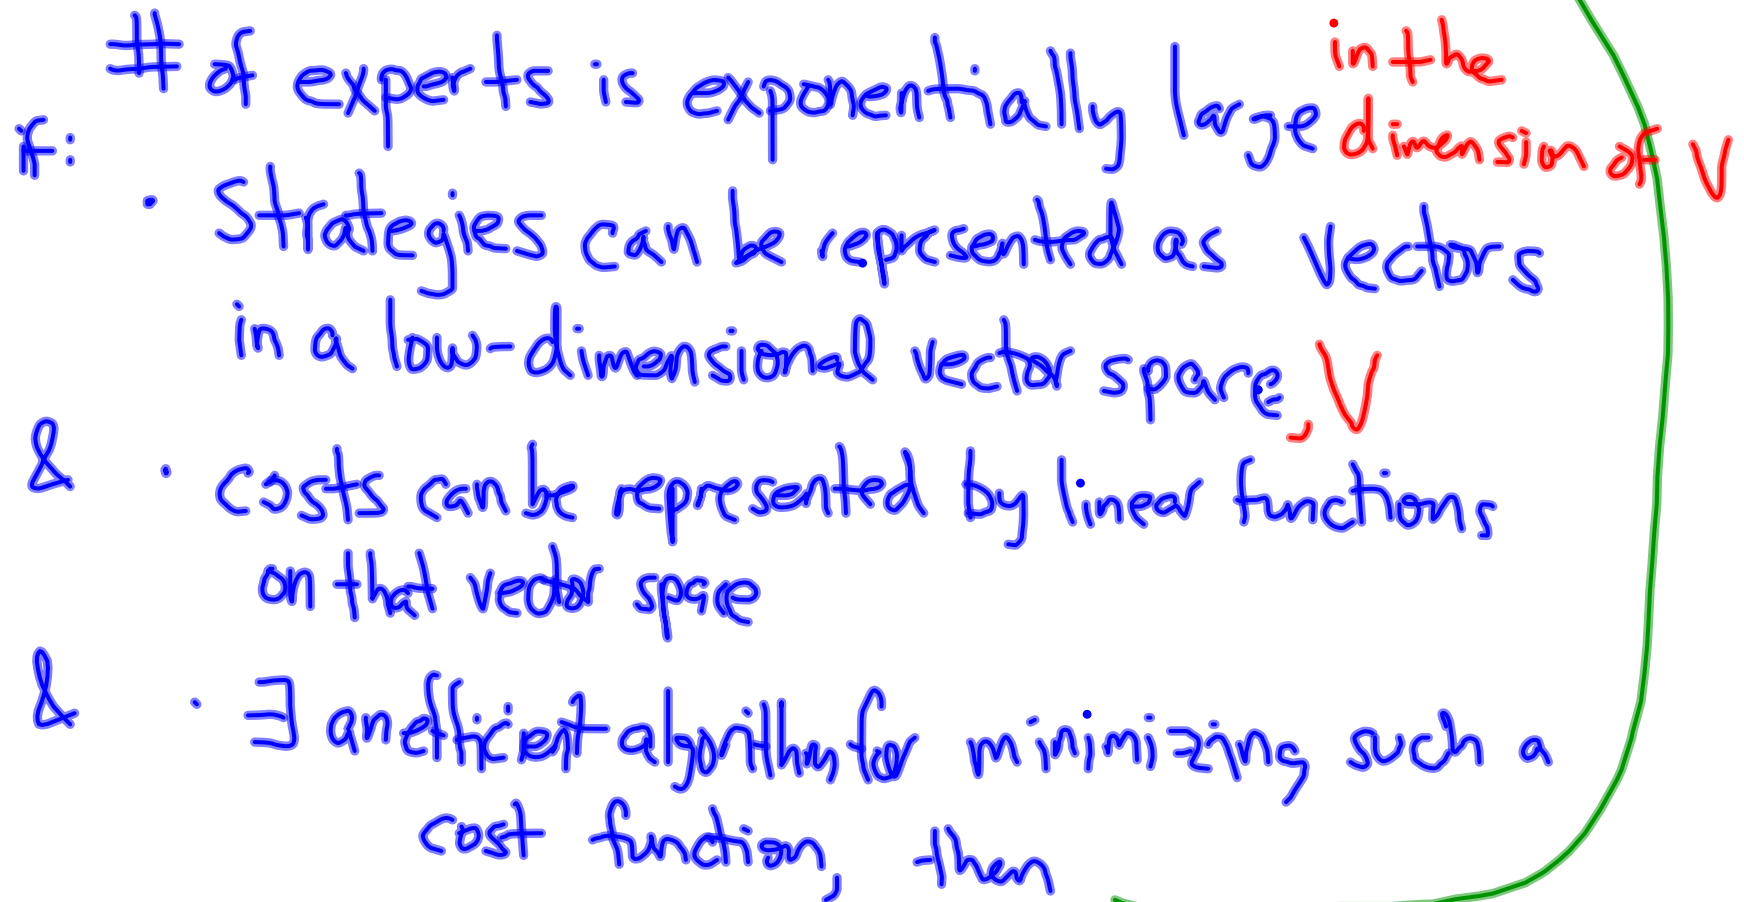 # of experts is exponentially large in the
if: dimension of V
· Strategies can be represented as vectors
in a low-dimensional vector space, V
& · costs can be represented by linear functions
on that vector space
& · ∃ an efficient algorithm for minimizing such a
cost function, then